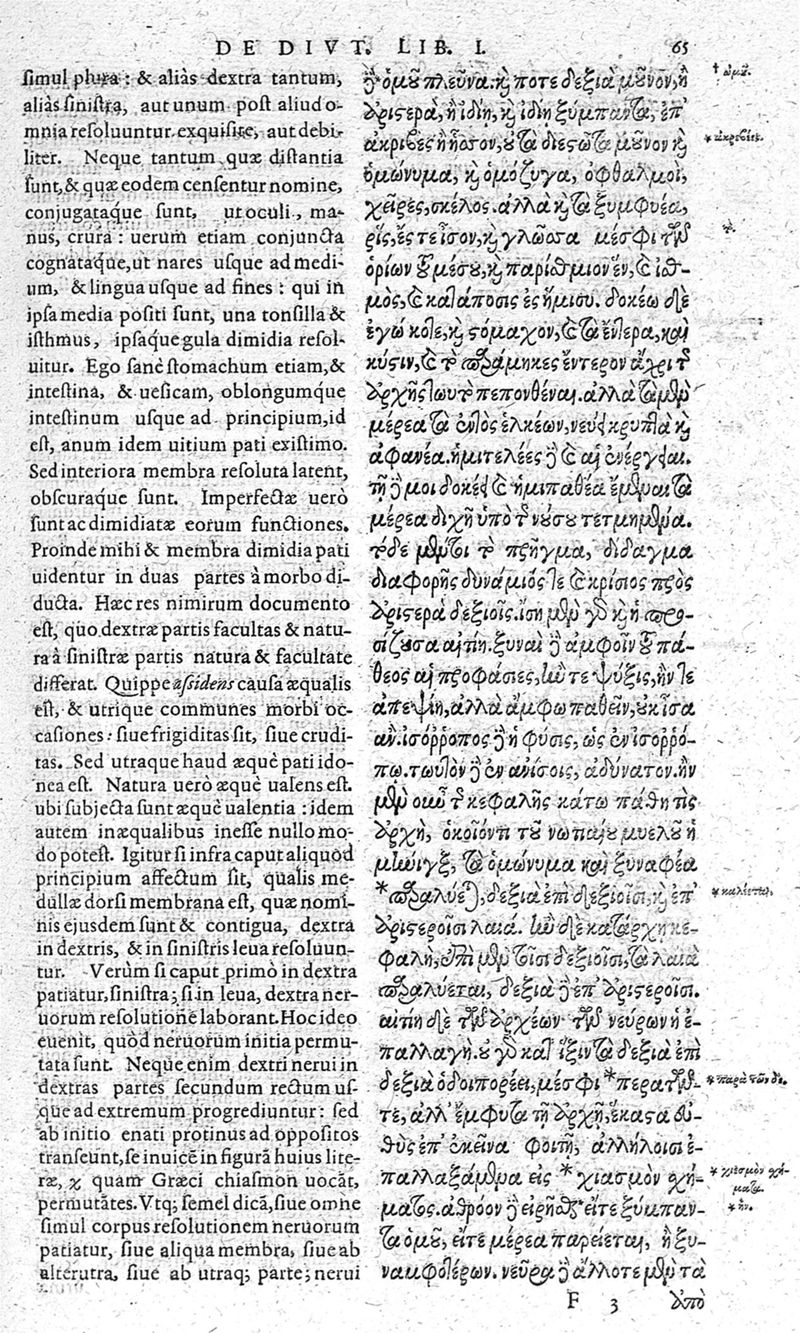 DE DIVT. LIB. I. 65
simul plura: & aliàs dextra tantum,
aliàs sinistra, aut unum post aliud o-
mnia resoluuntur exquisite, aut debi-
liter. Neque tantum quæ distantia
sunt, & quæ eodem censentur nomine,
conjugatáque sunt, ut oculi, ma-
nus, crura: uerum etiam conjuncta
cognatáque, ut nares usque ad medi-
um, & lingua usque ad fines: qui in
ipsa media positi sunt, una tonsilla &
isthmus, ipsáque gula dimidia resol-
uitur. Ego sanè stomachum etiam, &
intestina, & uesicam, oblongumque
intestinum usque ad principium, id
est, anum idem uitium pati existimo.
Sed interiora membra resoluta latent,
obscuraque sunt. Imperfectæ uerò
sunt ac dimidiatæ eorum functiones.
Proinde mihi & membra dimidia pati
uidentur in duas partes à morbo di-
ducta. Hæc res nimirum documento
est, quo dextræ partis facultas & natu-
ra à sinistræ partis natura & facultate
differat. Quippe assidens causa æqualis
est, & utrique communes morbi oc-
casiones: siue frigiditas sit, siue crudi-
tas. Sed utraque haud æquè pati ido-
nea est. Natura uerò æquè ualens est.
ubi subjecta sunt æquè ualentia: idem
autem inæqualibus inesse nullo mo-
do potest. Igitur si infra caput aliquod
principium affectum sit, qualis me-
dullæ dorsi membrana est, quæ nomi-
nis ejusdem sunt & contigua, dextra
in dextris, & in sinistris leua resoluun-
tur. Verùm si caput primò in dextra
patiatur, sinistra; si in leua, dextra ner-
uorum resolutione laborant. Hoc ideo
euenit, quòd neruorum initia permu-
tata sunt. Neque enim dextri nerui in
dextras partes secundum rectum us-
que ad extremum progrediuntur: sed
ab initio enati protinus ad oppositos
transeunt, se inuicē in figurā huius lite-
ræ, χ quam Græci chiasmon uocāt,
permutātes. Vtq; semel dicā, siue omne
simul corpus resolutionem neruorum
patiatur, siue aliqua membra, siue ab
alterutra, siue ab utraq; parte; nerui
ἢ ὁμοῦ πλεῦνα. καὶ ποτε δεξιὰ μοῦνον, ἢ
ἀριστερὰ, ἢ ἰδίῃ, καὶ ἰδίῃ ξύμπαντα, ἐπ'
ἀκριβὲς ἢ ἧσσον, οὐ τὰ διεστῶτα μοῦνον καὶ
ὁμώνυμα, καὶ ὁμόζυγα, ὀφθαλμοὶ,
χεῖρες, σκέλος. ἀλλὰ καὶ τὰ ξυμφυέα,
ῥὶς, ἔς τε ἶσον, καὶ γλῶσσα μέσφι τῶν
ὁρίων τοῦ μέσου, καὶ παρίσθμιον ἓν, καὶ ἰσθ-
μὸς, καὶ κατάποσις ἐς ἥμισυ. δοκέω δὲ
ἐγώ κοτε, καὶ στόμαχον, καὶ τὰ ἔντερα, καὶ
κύστιν, καὶ τὸ παράμηκες ἔντερον ἄχρι τῆς
ἀρχῆς τωυτὸ πεπονθέναι. ἀλλὰ τὰ μὲν
μέρεα τὰ ἐντὸς ἑλκέων, νεύει κρυπτὰ καὶ
ἀφανέα. ἡμιτελέες δὲ καὶ αἱ ἐνέργειαι.
τῇ δέ μοι δοκέει καὶ ἡμιπαθέα ἔμμεναι τὰ
μέρεα διχῆ ὑπὸ τῆς νούσου τετμημένα.
τόδε μέντοι τὸ πρῆγμα, δίδαγμα
διαφορῆς δυνάμιός τε καὶ κρίσιος πρὸς
ἀριστερὰ δεξιοῖς. ἴση μὲν γὰρ καὶ ἡ προ-
σίζουσα αἰτίη. ξυναὶ δὲ ἀμφοῖν τοῦ πά-
θεος αἱ προφάσιες, ἤν τε ψύξις, ἤν τε
ἀπεψίη, ἀλλὰ ἄμφω παθεῖν, οὐκ ἴσα
ἄν. ἰσόρροπος δὲ ἡ φύσις, ὡς ἐν ἰσορρό-
πῳ. τωυτὸν δὲ ἐν ἀνίσοις, ἀδύνατον. ἢν
μὲν οὖν τῆς κεφαλῆς κάτω πάθῃ τὶς
ἀρχὴ, ὁκοῖόν τι τοῦ νωπαίου μυελοῦ ἡ
μῆνιγξ, τὰ ὁμώνυμα καὶ ξυναφέα
*παραλύεται, δεξιὰ ἐπὶ δεξιοῖσι, καὶ ἐπ'
ἀριστεροῖσι λαιά. ἢν δὲ κατάρχῃ κε-
φαλὴ, ἐπὶ μὲν τοῖσι δεξιοῖσι, τὰ λαιὰ
παραλύεται, δεξιὰ δὲ ἐπ' ἀριστεροῖσι.
αἰτίη δὲ τῶν ἀρχέων τῶν νεύρων ἡ ἐ-
παλλαγή. οὐ γὰρ κατ' ἴξιν τὰ δεξιὰ ἐπὶ
δεξιὰ ὁδοιπορέει, μέσφι *περάτων-
τε, ἀλλ' ἔμφυτα τῇ ἀρχῇ, ἕκαστα εὐ-
θὺς ἐπ' ἐκεῖνα φοιτῇ, ἀλλήλοισι ἐ-
παλλαξάμενα εἰς *χιασμὸν σχή-
ματος. ἀθρόον δὲ εἰρῆσθαι εἴτε ξύμπαν-
τα ὁμοῦ, εἴτε μέρεα παρείεται, ἢ ξυ-
ναμφοτέρων. νεῦρα δὲ ἄλλοτε μὲν τὰ
F 3 ἀπὸ
† ὠμοῦ.
* ἀκριβίης.
*
* καλέεται.
* παρὰ τῶν δε.
* χιεσμὸν σχή-
ματα.
* ἤν.